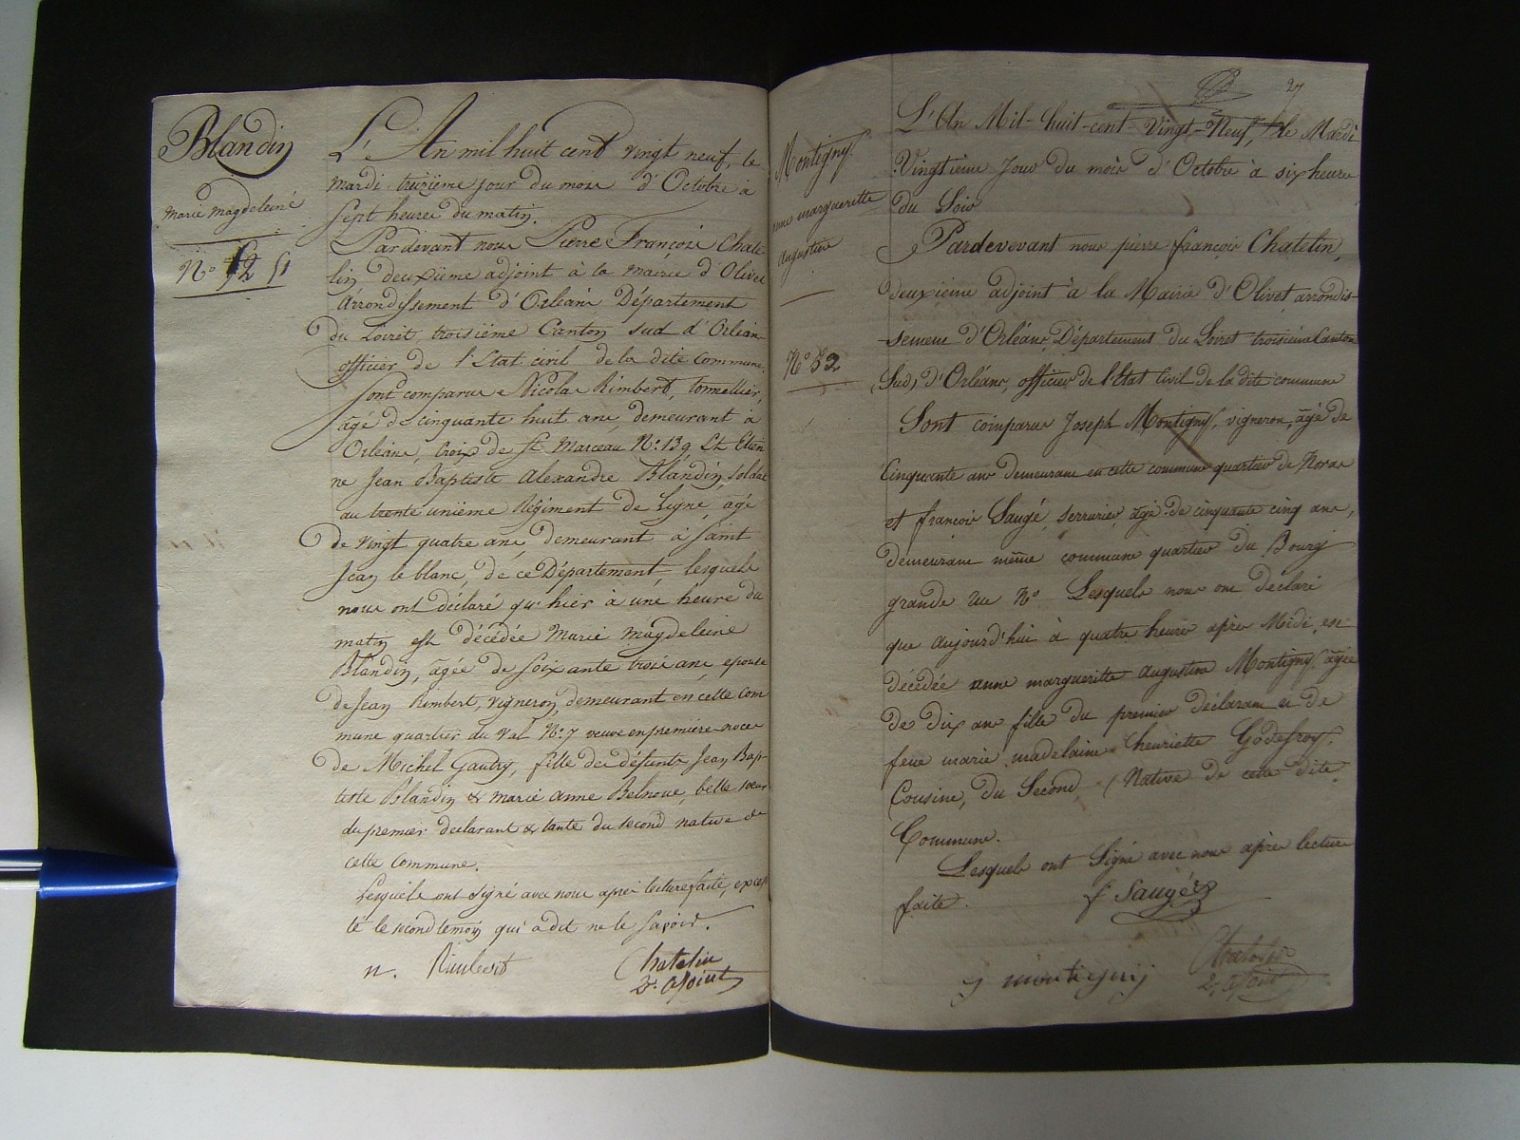 Blandin
marie magdeleine
N° 51
L'An mil huit cent vingt neuf, le
mardi treizième jour du mois d'Octobre à
Sept heures du matin.
Pardevant nous Pierre François Chate-
lin, deuxième adjoint à la mairie d'Olivet
Arrondissement d'Orléans Département
du Loiret, troisième Canton sud d'Orléans
officier de l'Etat civil de la dite Commune.
Sont comparus Nicolas Rimbert, tonnellier,
âgé de cinquante huit ans, demeurant à
Orléans, croix de St Marceau N° 139 Et Etien
ne Jean Baptiste Alexandre Blandin, soldat
au trente unième Régiment de Ligne, âgé
de vingt quatre ans, demeurant à Saint
Jean le blanc, de ce Département lesquels
nous ont déclaré qu'hier à une heure du
matin est décédée Marie Magdeleine
Blandin, âgée de soixante trois ans, epouse
de Jean Rimbert, vigneron, demeurant en cette com
mune quartier du Val N° 7 veuve en première noce
de Michel Gautry, fille des défunts Jean Bap-
tiste Blandin & marie anne Belnoue, belle soeur
du premier declarant & tante du second native de
cette Commune.
Lesquels ont signé avec nous après lecture faite, excep
té le second temoin qui a dit ne le savoir.
n. Rimbert
Chatelin
2e. adjoint
27
Montigny
anne marguerite
augustine
N° 52
L'An Mil-huit-cent-Vingt-Neuf, le Mardi
Vingtième Jour du mois d'Octobre à six heures
du Soir
Pardevevant nous pierre françois Chatelin,
deuxieme adjoint à la Mairie d'Olivet arrondis-
-sement d'Orléans, Département du Loiret troisieme Canton
(Sud) d'Orléans, officier de l'Etat Civil de la dite commune
Sont comparus Joseph Montigny, vigneron, âgé de
Cinquante ans demeurant en cette commune quartier de
et françois Saugé, serrurier, âgé de cinquante cinq ans,
demeurant même commune quartier du Bourg
grande rue N° Lesquels nous ont déclaré
que aujourd'hui à quatre heures après Midi, est
décédée anne marguerite augustine Montigny, âgée
de dix ans fille du premier déclarant et de
feue marie madelaine henriette Godefroy.
Cousine, du Second, Native de cette dite
Commune.
Lesquels ont Signé avec nous après lecture
faite.
f Saugé
J montigny
Chatelin
2e. adjoint